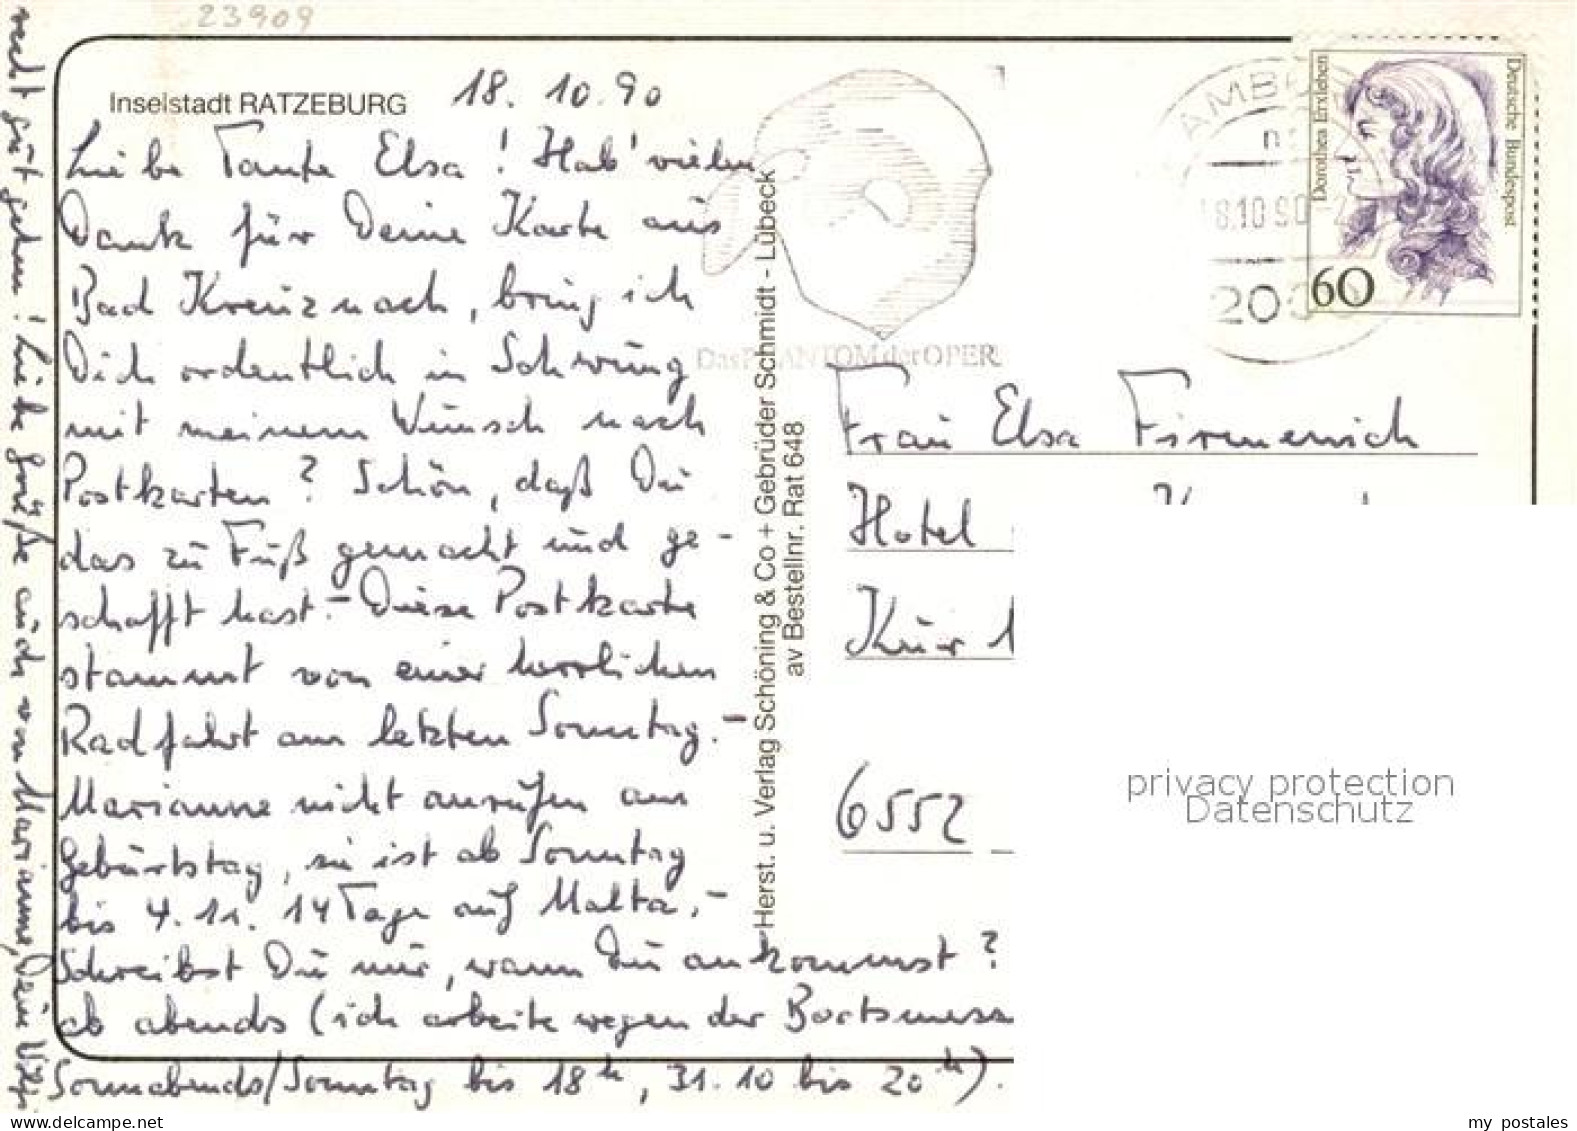 23909
Inselstadt RATZEBURG
18.10.90
Liebe Tante Elsa! Hab' vielen
Dank für Deine Karte aus
Bad Kreuznach, bring ich
Dich ordentlich in Schwung
mit meinem Wunsch nach
Postkarten? Schön, daß Du
das zu Fuß gemacht und ge-
schafft hast. – Diese Postkarte
stammt von einer herrlichen
Radfahrt am letzten Sonntag. –
Marianne nicht anrufen am
Geburtstag, sie ist ab Sonntag
bis 4.11. 14 Tage auf Malta. –
Schreibst Du mir, wann Du ankommst?
ab abends (ich arbeite wegen der Bootsmess
Sonnabends/Sonntag bis 18h, 31.10 bis 20h).
recht gut gehen! Liebe Grüße auch von Marianne, Deine
Herst. u. Verlag Schöning & Co + Gebrüder Schmidt - Lübeck
av Bestellnr. Rat 648
Das PHANTOM der OPER
AMB
18.10.90
200
Dorothea Erxleben
Deutsche Bundespost
60
Frau Elsa Firmenich
Hotel
Kur
6552
privacy protection
Datenschutz
my postales